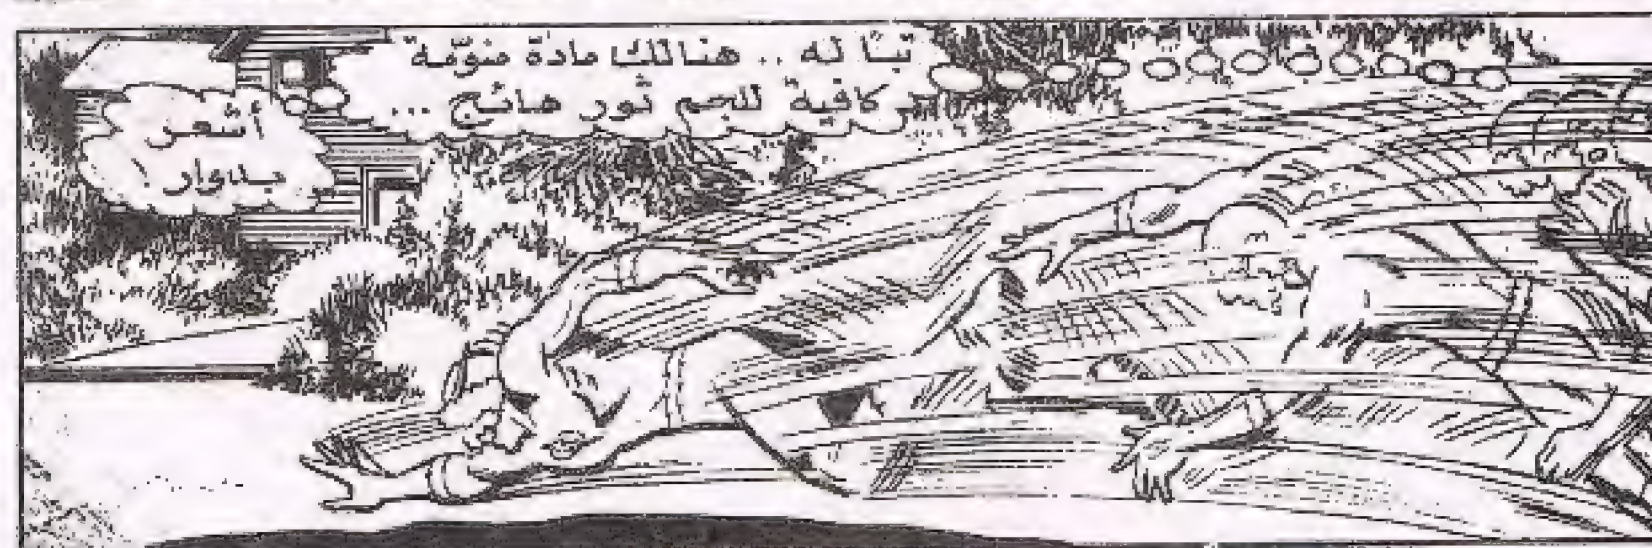 تبًا له .. هنالك مادة منوّمة
كافية للجم ثور هائج ...
أشعر
بدوار !